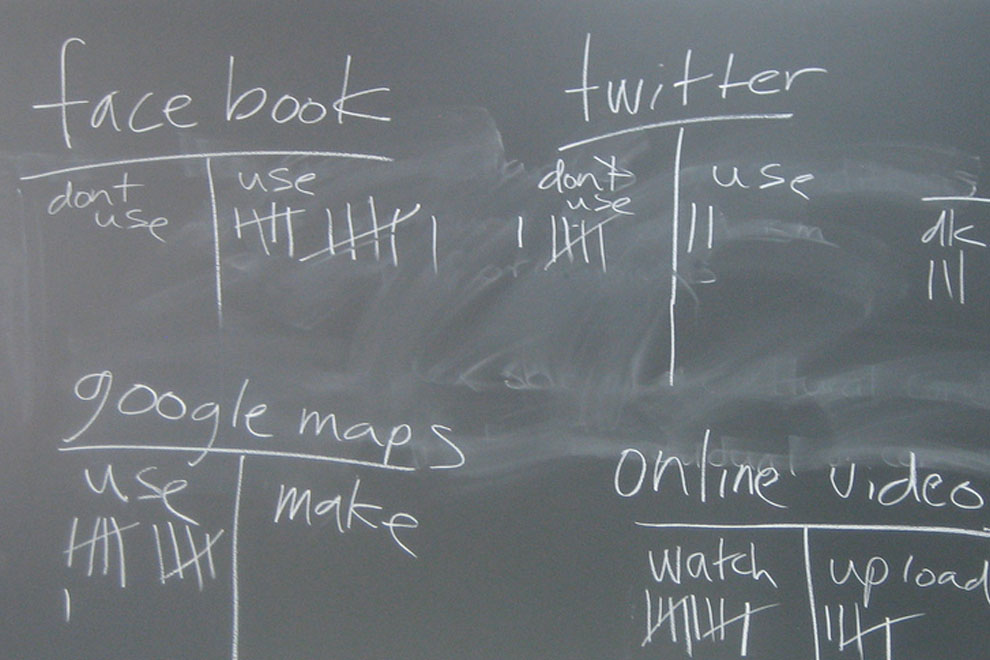 facebook
dont
use
use
twitter
dont
use
use
dk
google maps
use
make
online video
watch
upload